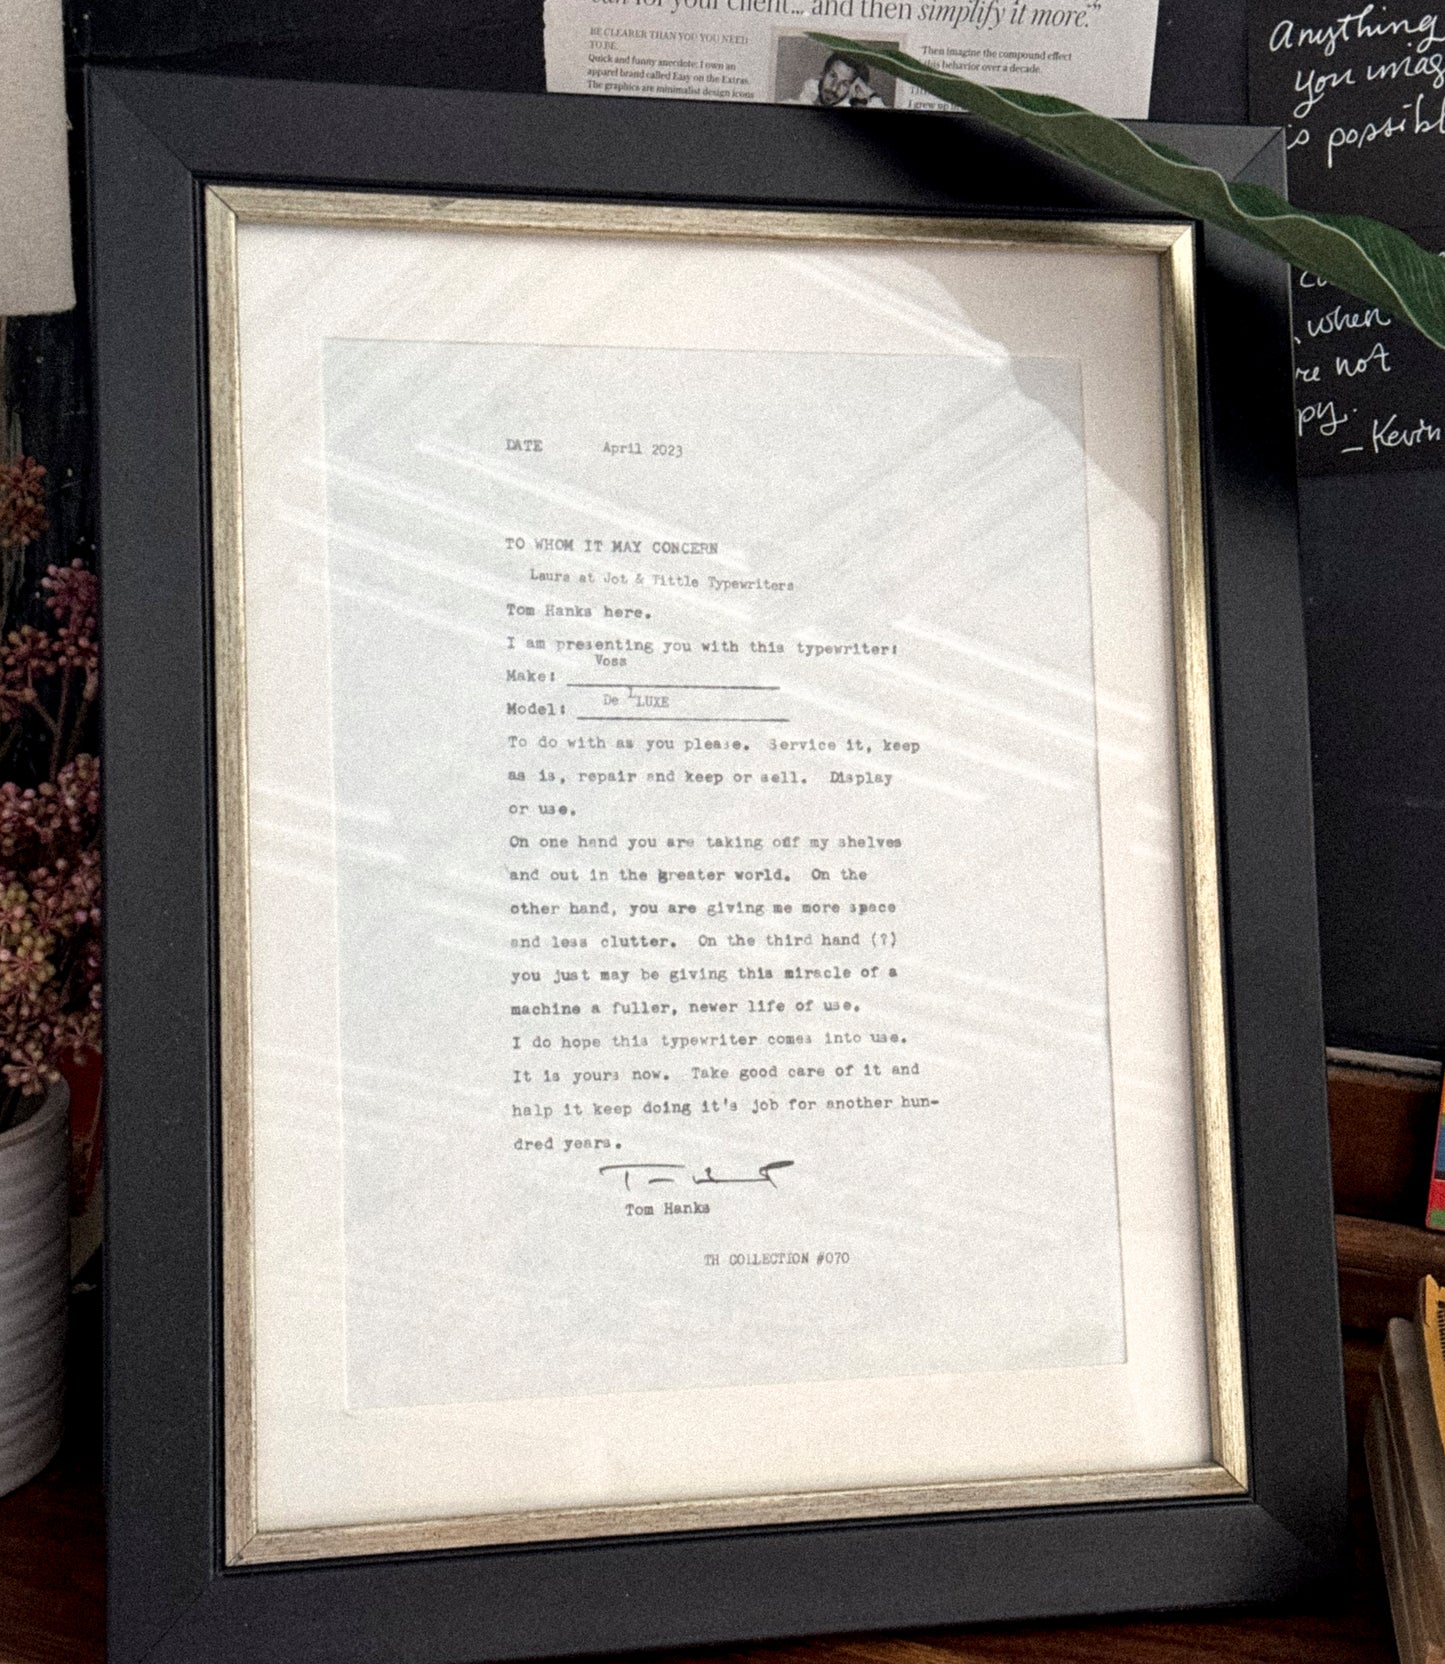 can for your client... and then simplify it more."
BE CLEARER THAN YOU YOU NEED
TO BE.
Quick and funny anecdote: I own an
apparel brand called Easy on the Extras.
The graphics are minimalist design icons
Then imagine the compound effect
this behavior over a decade.
I grew up
Anything
you imag
is possibl
when
re not
py.
- Kevin
DATE April 2023
TO WHOM IT MAY CONCERN
Laura at Jot & Tittle Typewriters
Tom Hanks here.
I am presenting you with this typewriter:
Voss
Make:
De LUXE
Model:
To do with as you please. Service it, keep
as is, repair and keep or sell. Display
or use.
On one hand you are taking off my shelves
and out in the greater world. On the
other hand, you are giving me more space
and less clutter. On the third hand (?)
you just may be giving this miracle of a
machine a fuller, newer life of use.
I do hope this typewriter comes into use.
It is yours now. Take good care of it and
halp it keep doing it's job for another hun-
dred years.
Tom Hanks
TH COLLECTION #070